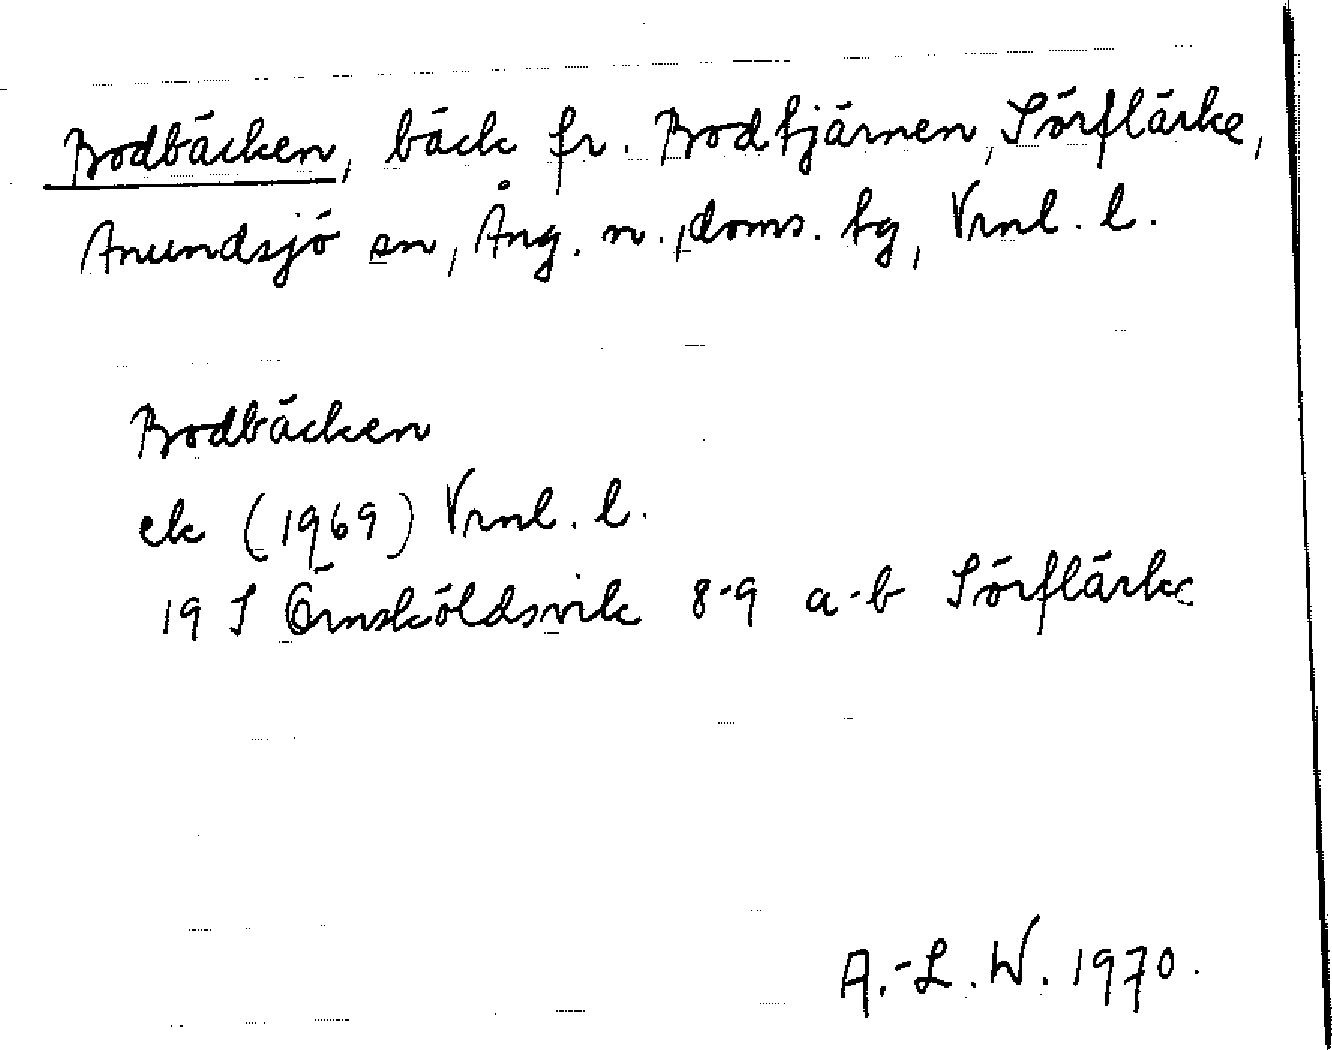 Bodbäcken, bäck fr. Bodtjärnen, Sörflärke,
Anundsjö sn, Ång. n., doms. tg, Vrnl. l.
Bodbäcken
ek (1969) Vrnl. l.
19 I Örnsköldsvik 8-9 a-b Sörflärke
A.-L. W. 1970.